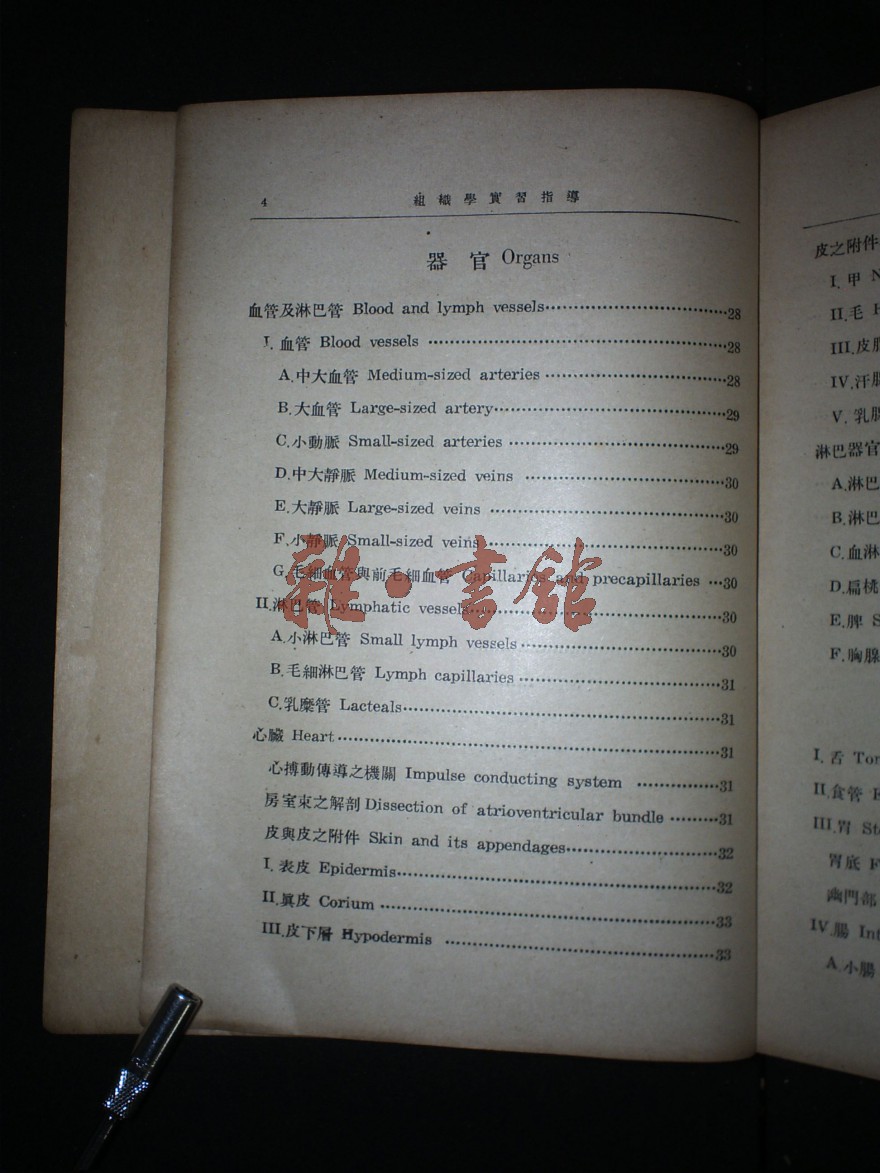 4 組織學實習指導
器官 Organs
血管及淋巴管 Blood and lymph vessels 28
I. 血管 Blood vessels 28
A.中大血管 Medium-sized arteries 28
B.大血管 Large-sized artery 29
C.小動脈 Small-sized arteries 29
D.中大靜脈 Medium-sized veins 30
E.大靜脈 Large-sized veins 30
F.小靜脈 Small-sized veins 30
G.毛細血管與前毛細血管 Capillaries and precapillaries 30
II.淋巴管 Lymphatic vessels 30
A.小淋巴管 Small lymph vessels 30
B.毛細淋巴管 Lymph capillaries 31
C.乳糜管 Lacteals 31
心臟 Heart 31
心搏動傳導之機關 Impulse conducting system 31
房室束之解剖 Dissection of atrioventricular bundle 31
皮與皮之附件 Skin and its appendages 32
I. 表皮 Epidermis 32
II.眞皮 Corium 33
III.皮下層 Hypodermis 33
雜·書館
皮之附件
I. 甲
II.毛
III.皮
IV.汗腺
V. 乳腺
淋巴器官
A.淋巴
B.淋巴
C.血淋
D.扁桃
E.脾
F.胸腺
I. 舌
II.食管
III.胃
胃底
幽門部
IV.腸
A.小腸